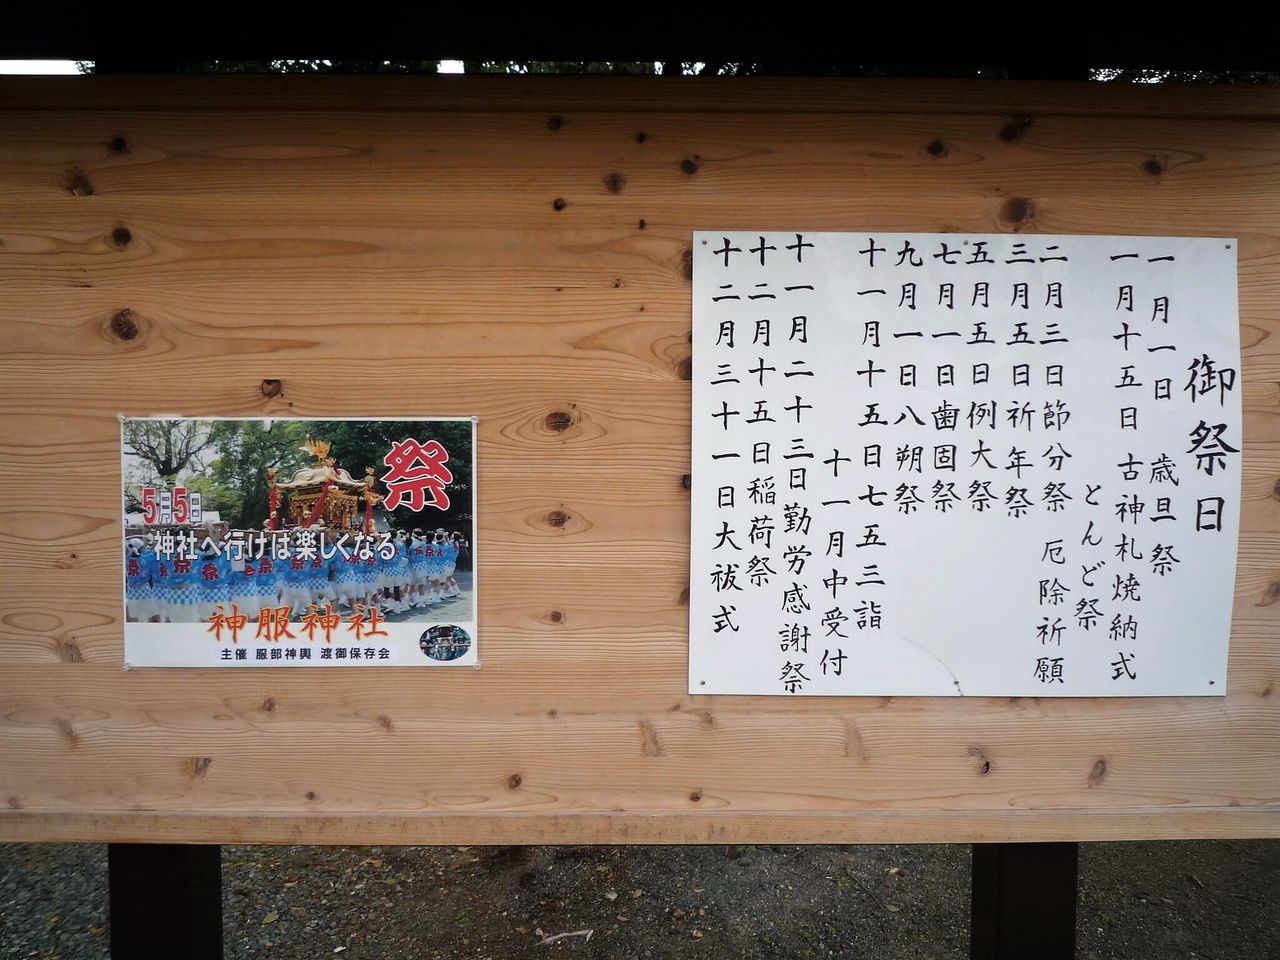 御祭日
一月一日 歳旦祭
一月十五日 古神札焼納式
とんど祭
二月三日節分祭 厄除祈願
三月五日祈年祭
五月五日例大祭
七月一日歯固祭
九月一日八朔祭
十一月十五日七五三詣
十一月中受付
十一月二十三日勤労感謝祭
十二月十五日稲荷祭
十二月三十一日大祓式
祭
5月5日
神社へ行けは楽しくなる
神服神社
主催 服部神輿 渡御保存会